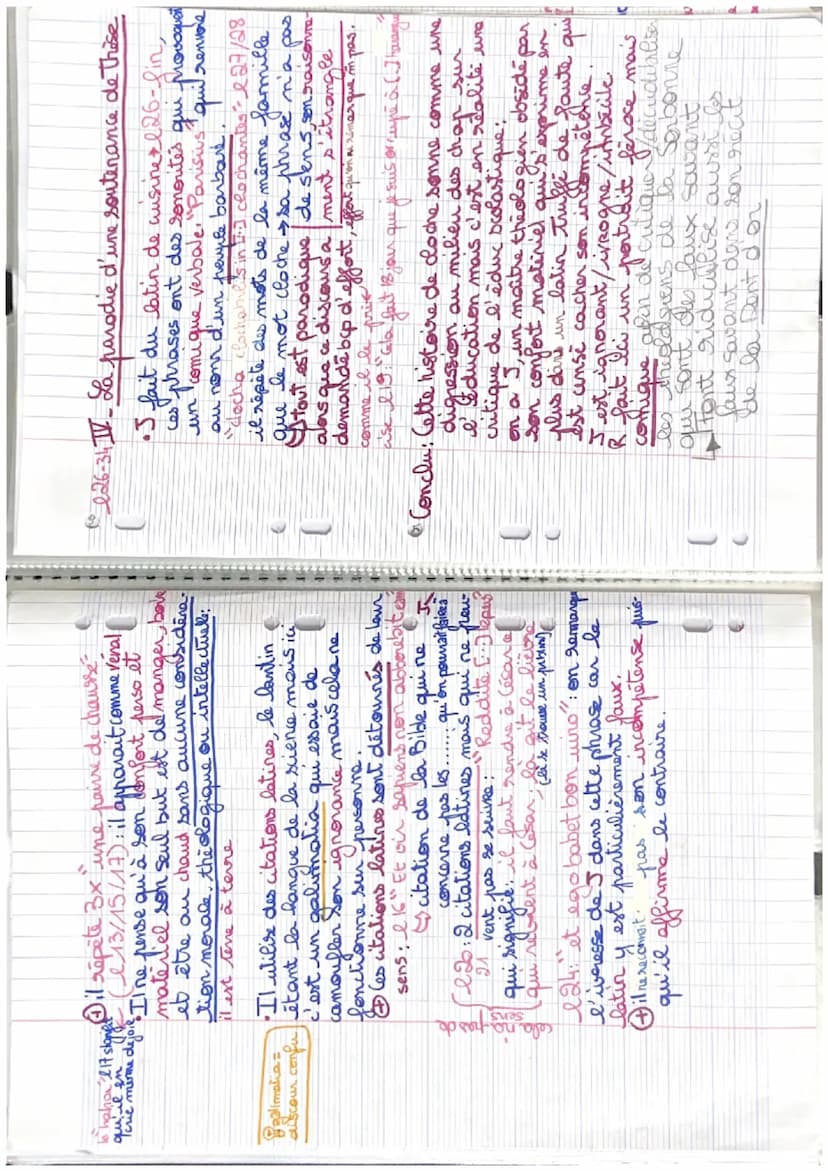 ⊕ il répète 3x "une paire de chausse"
(l13/15/17) : il apparait comme vénal
"hahaha" l17 signifie
qu'il en
même de joie
• Il ne pense qu'à son confort perso et
matériel son seul but est de manger, boire
et être au chaud sans aucune considéra-
tion morale, théologique ou intellectuelle :
il est terre à terre
• Il utilise des citations latines, le lantin
étant la langue de la science mais ici
c'est un galimatia qui essaie de
camoufler son ignorance mais cela ne
fonctionne sur personne.
galimatia =
discour confu
⊕ les citations latines sont détournés de leur
sens : l16 "Et vir sapiens non abhorrebit eam
↳ citation de la Bible qui ne
concerne pas les ...... qu'on pourrait faire à J
l20 : 2 citations latines mais qui ne peu-
21
vent pas se suivre : "Reddite [...] lepus"
qui signifie : il faut rendre à César ce
qui revient à César, là gît le lièvre
(là se trouve un)
l24 : "et ego habet bon uino" : on remarque
l'ivresse de J dans cette phrase car le
latin y est particulièrement faux.
⊕ il ne reconnait pas son incompétence puis-
qu'il affirme le contraire.
l26-34 IV - La parodie d'une soutenance de thèse
• J fait du latin de cuisine l26-fin,
ces phrases ont des sonorités qui provoquent
un comique verbale : "Parisius" qui renvoie
au nom d'un peuple barbare.
"clocha clochabilis in [...] clochantes" l27/28
il répète des mots de la même famille
que le mot cloche → sa phrase n'a pas
de sens, son raisonne-
ment s'étrangle
↳ tout est parodique
alors que ce discours a
demandé bcp d'effort, effort qu'on n'imaginait pas.
comme il le précise
l19 : "Cela fait 18 jour que je suis occupé à [...] harangue
Conclu : Cette histoire de cloche sonne comme une
digression au milieu des chap sur
l'éducation mais c'est en réalité une
critique de l'éduc scolastique :
on a J, un maître théologien obsédé par
son confort matériel qui s'exprime en
plus dans un latin truffé de faute qui
est censé cacher son incompétence.
J est ignorant/ivrogne/imbécile.
R fait lui un portrait féroce mais
comique afin de critiquer/décrédibiliser
les théologiens de la Sorbonne
qui sont des faux savant
↳ Font ridiculise aussi les
faux savant dans son récit
de la Dent d'or